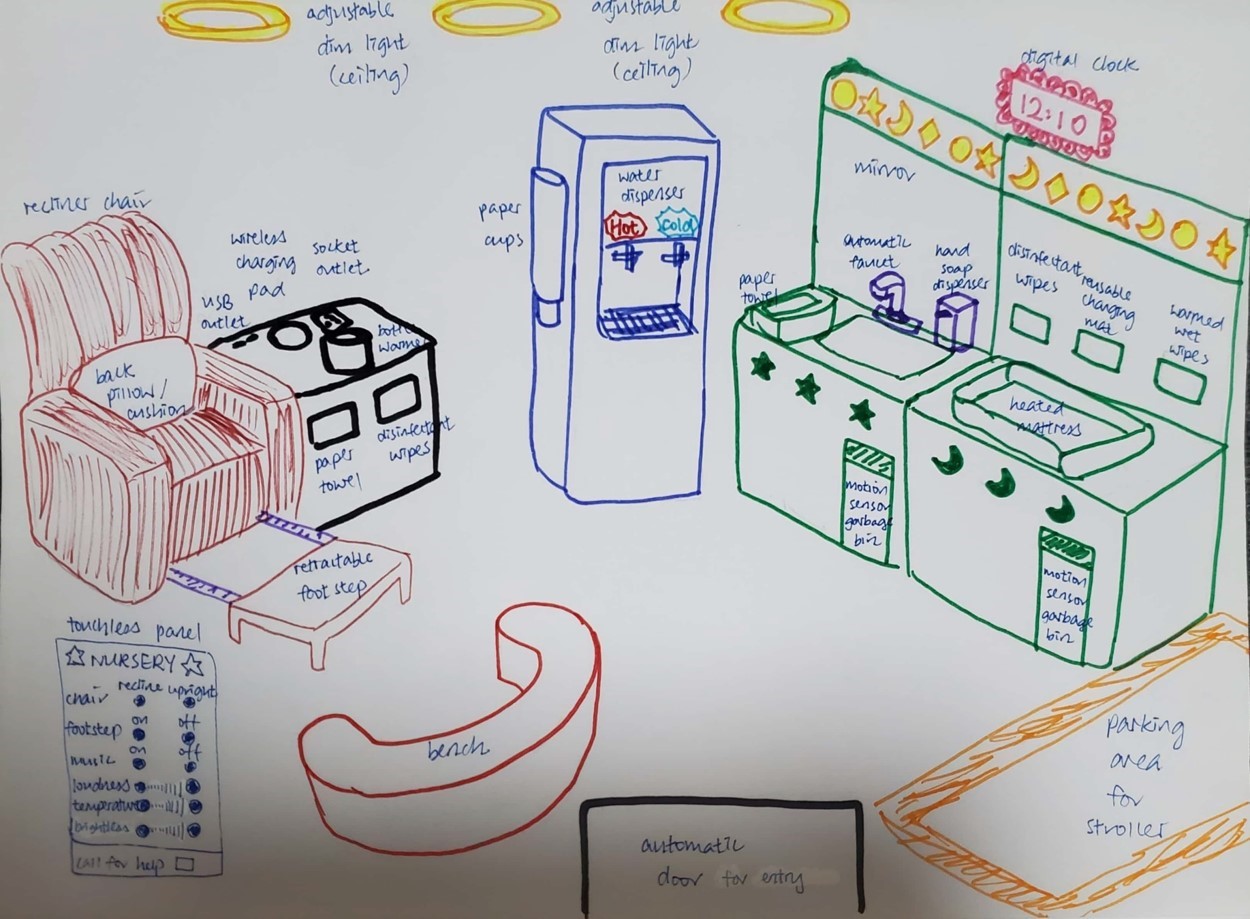 adjustable
dim light
(ceiling)
adjustable
dim light
(ceiling)
digital clock
12:10
recliner chair
wireless
charging
pad
socket
outlet
USB
outlet
bottle
warmer
back
pillow/
cushion
paper
towel
disinfectant
wipes
retractable
foot step
paper
cups
water
dispenser
Hot
Cold
mirror
automatic
faucet
hand
soap
dispenser
paper
towel
disinfectant
wipes
reusable
changing
mat
warmed
wet
wipes
heated
mattress
motion
sensor
garbage
bin
motion
sensor
garbage
bin
touchless panel
NURSERY
recline upright
chair
on off
footstep
on off
music
loudness
temperature
brightless
call for help
bench
automatic
door for entry
parking
area
for
stroller